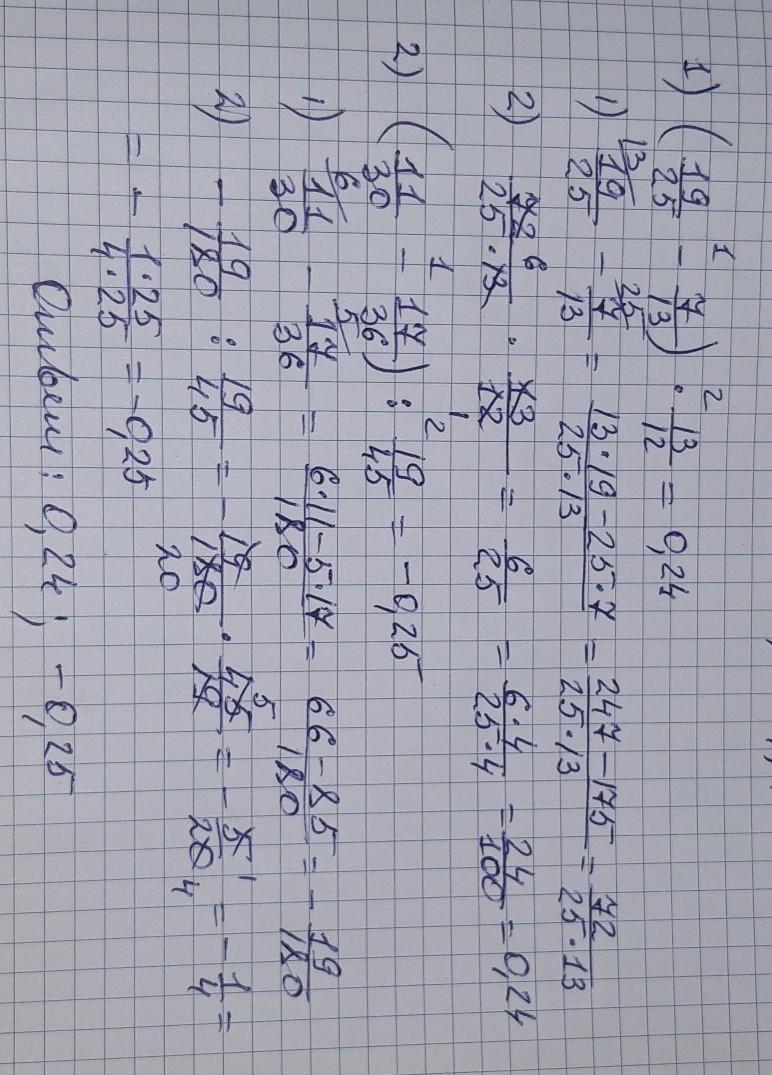 1) (19/25 - 7/13) · 13/12 = 0,24
1) 19/25 - 7/13 = (13·19-25·7)/(25·13) = (247-175)/(25·13) = 72/(25·13)
2) 72/(25·13) · 13/12 = 6/25 = (6·4)/(25·4) = 24/100 = 0,24
2) (11/30 - 17/36) : 19/45 = -0,25
1) 11/30 - 17/36 = (6·11-5·17)/180 = (66-85)/180 = -19/180
2) -19/180 : 19/45 = -19/180 · 45/19 = -5/20 = -1/4 =
= - (1·25)/(4·25) = -0,25
Ответ: 0,24; -0,25